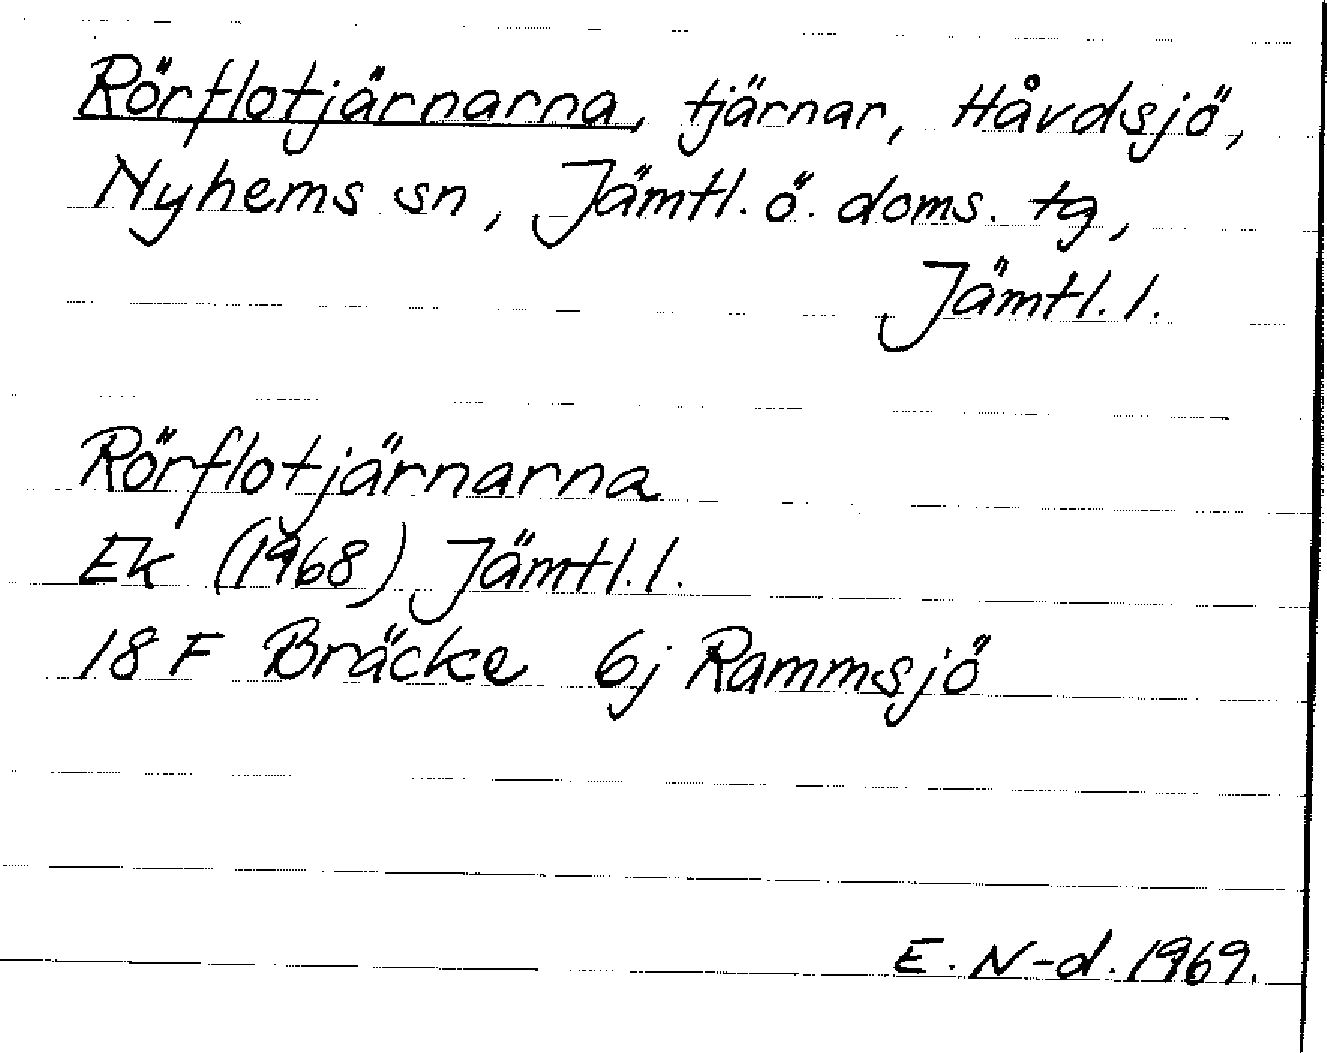 Rörflotjärnarna, tjärnar, Håvdsjö,
Nyhems sn, Jämtl. ö. doms. tg,
Jämtl. l.
Rörflotjärnarna
Ek (1968) Jämtl. l.
18 F Bräcke 6j Rammsjö
E. N-d. 1969.